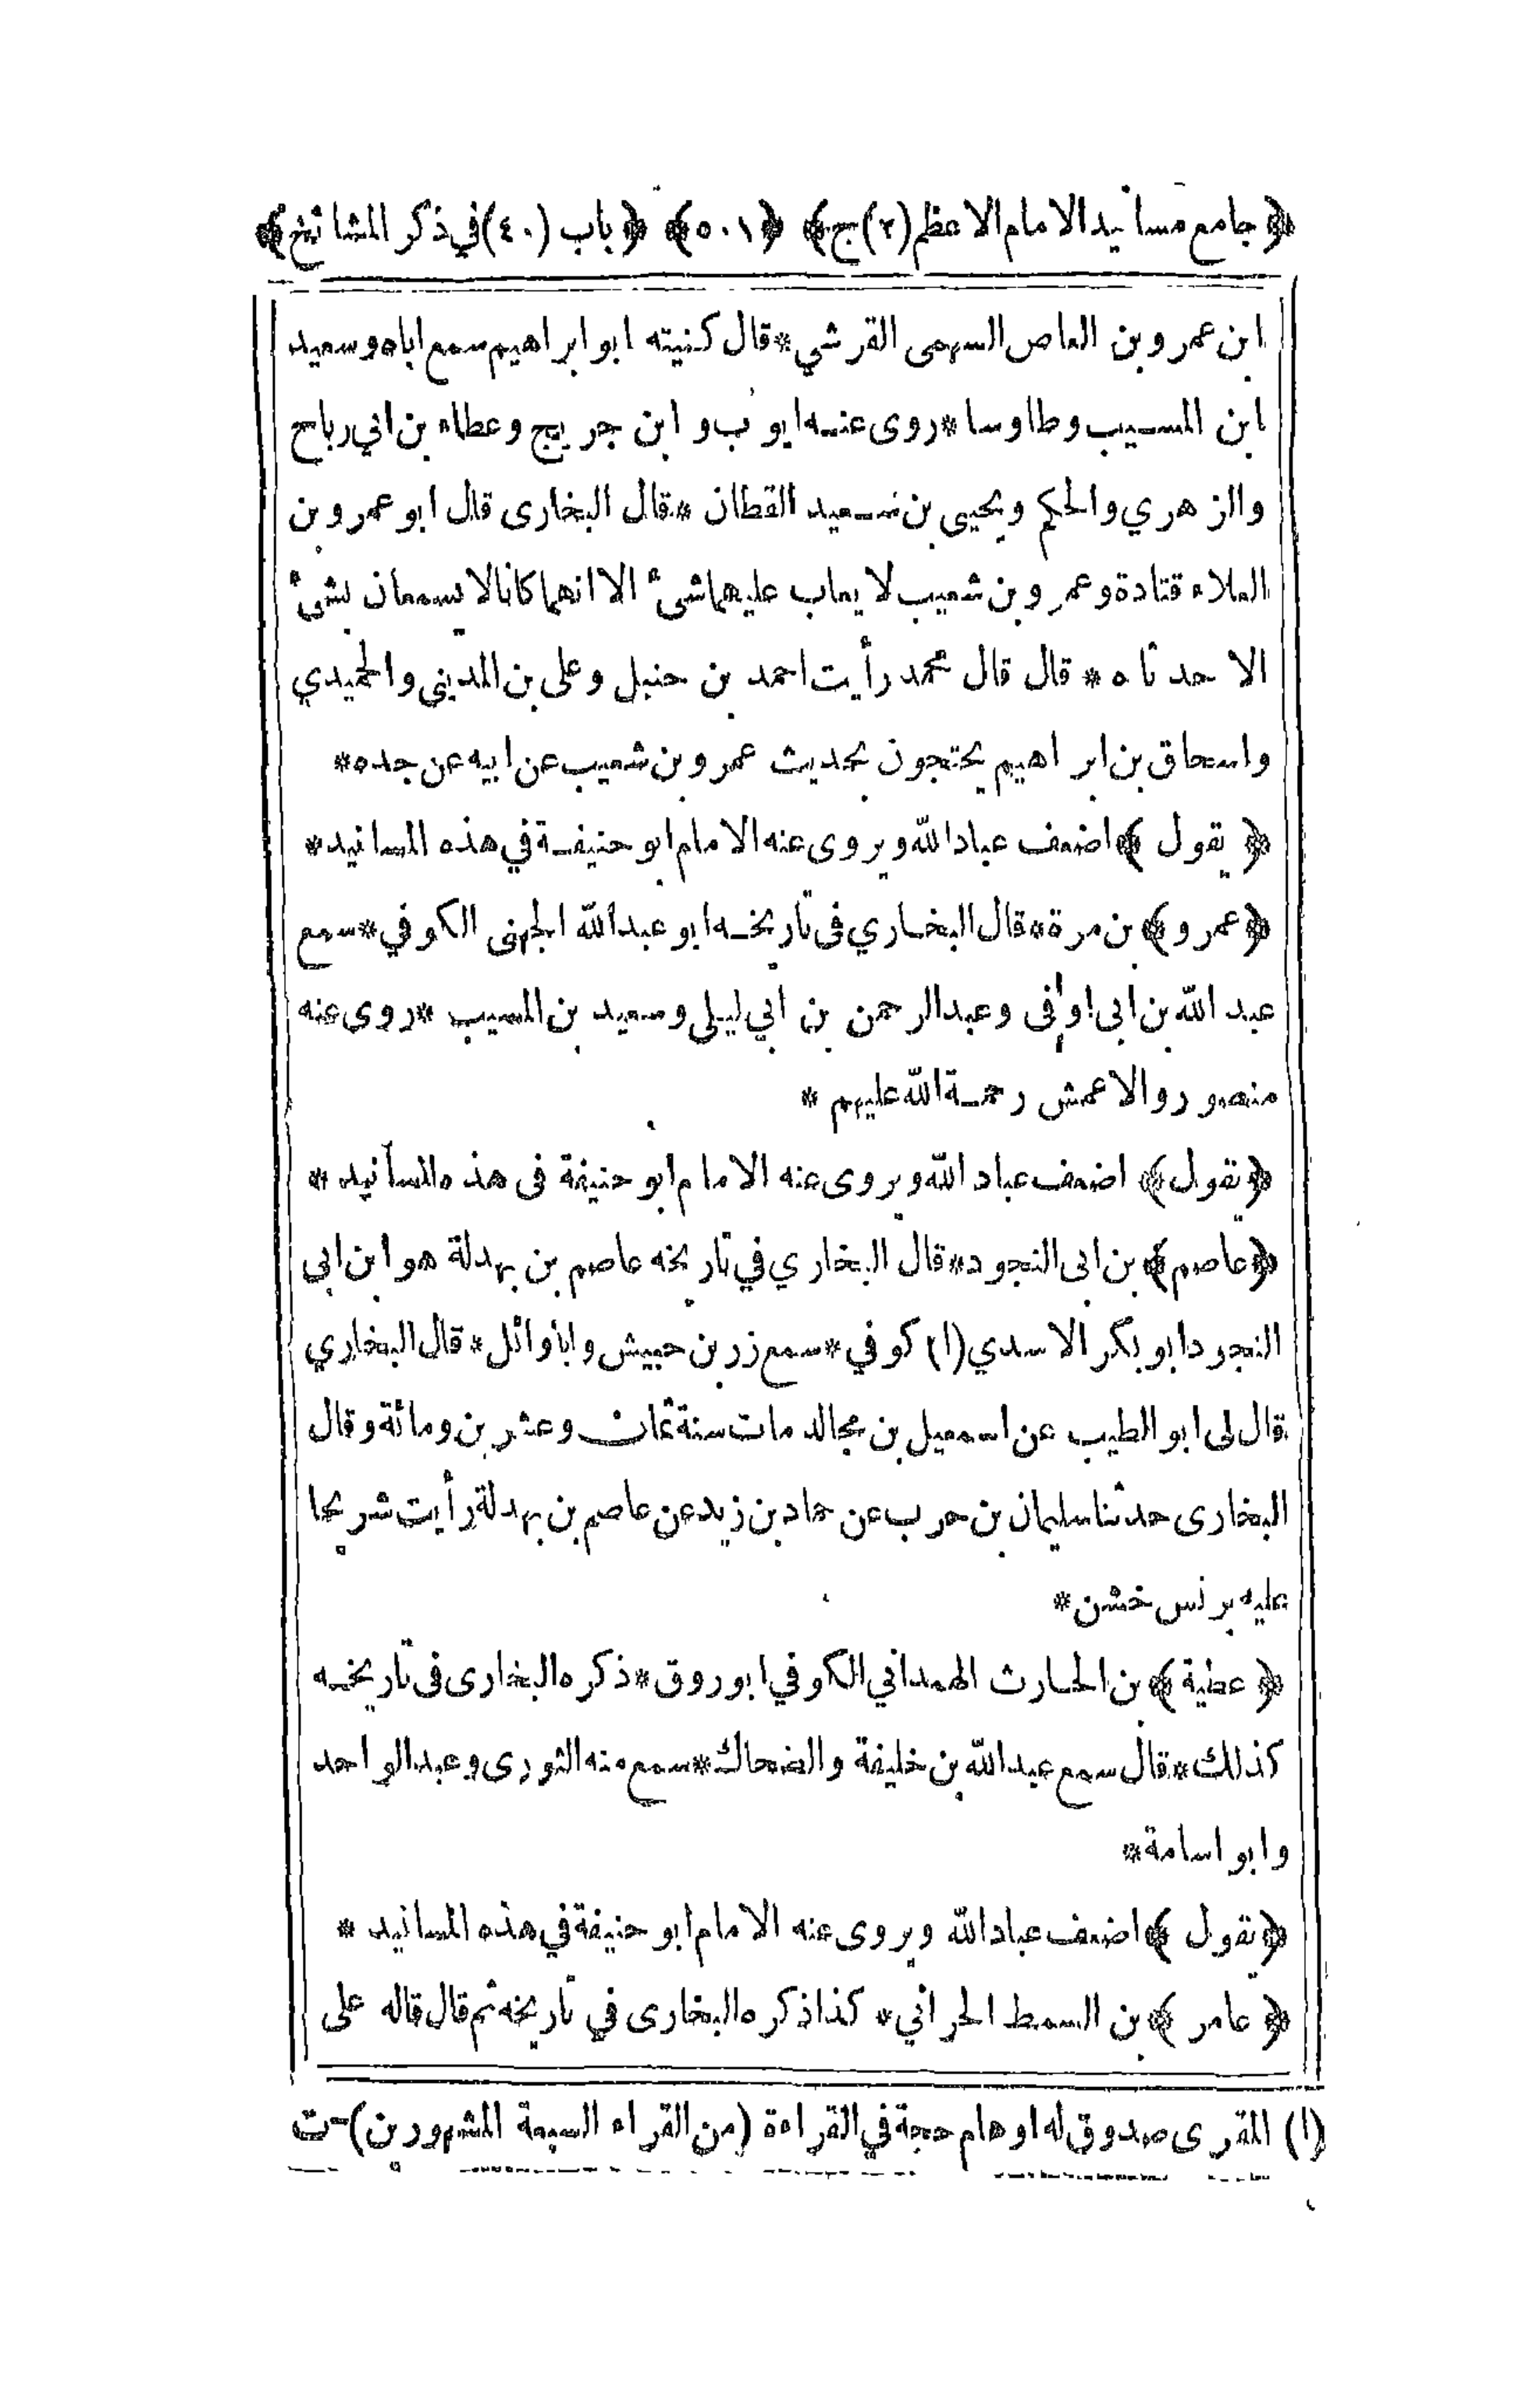 ﴿جامع مسانيد الامام الاعظم (٢) ج﴾ ﴿٥٠١﴾ ﴿باب (٤٠) في ذكر المشائخ﴾
ابن عمرو بن العاص السهمى القرشي * قال كنيته ابو ابراهيم سمع اباه وسعيد
ابن المسيب وطاوسا * روى عنه ايوب و ابن جريج وعطاء بن ابي رباح
والزهري والحكم ويحيى بن سعيد القطان * قال البخارى قال ابو عمرو بن
العلاء قتادة وعمرو بن شعيب لا يعاب عليهما شىء الا انهما كانا لا يسمعان بشىء
الا حدثا ه * قال قال محمد رأيت احمد بن حنبل وعلى بن المديني والحميدي
واسحاق بن ابراهيم يحتجون بحديث عمرو بن شعيب عن ابيه عن جده *
﴿يقول﴾ اضعف عباد الله ويروى عنه الامام ابو حنيفة في هذه المسانيد *
﴿عمرو﴾ بن مرة * قال البخاري فى تاريخه ابو عبد الله الجهنى الكوفي * سمع
عبد الله بن ابى اوفى وعبد الرحمن بن ابي ليلى وسعيد بن المسيب * روى عنه
منصور والاعمش رحمة الله عليهم *
﴿يقول﴾ اضعف عباد الله ويروى عنه الامام ابو حنيفة فى هذه المسانيد *
﴿عاصم﴾ بن ابى النجود * قال البخاري في تاريخه عاصم بن بهدلة هو ابن ابى
النجود ابو بكر الاسدي (١) كوفي * سمع زر بن حبيش وابا وائل * قال البخاري
قال لى ابو الطيب عن اسمعيل بن مجالد مات سنة ثمان وعشرين ومائة وقال
البخارى حدثنا سليمان بن حرب عن حماد بن زيد عن عاصم بن بهدلة رأيت شريحا
عليه برنس خشن *
﴿عطية﴾ بن الحارث الهمداني الكوفي ابو روق * ذكره البخارى فى تاريخه
كذلك * قال سمع عبد الله بن خليفة والضحاك * سمع منه الثورى وعبد الواحد
وابو اسامة *
﴿يقول﴾ اضعف عباد الله ويروى عنه الامام ابو حنيفة في هذه المسانيد *
﴿عامر﴾ بن السمط الحراني * كذا ذكره البخارى في تاريخه ثم قال قاله على
(١) المقرى صدوق له اوهام حجة في القراءة (من القراء السبعة المشهورين) - ت